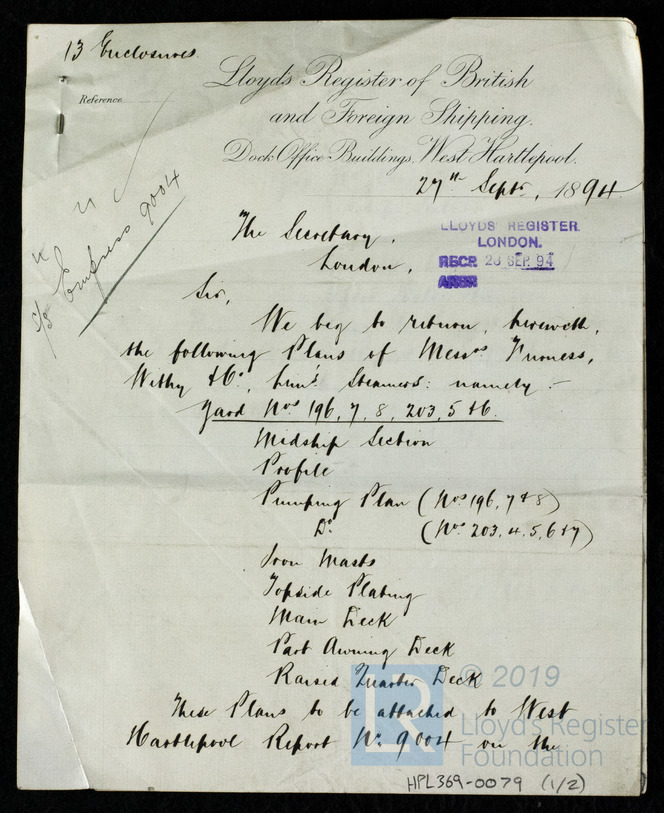 13 Enclosures.
Lloyd's Register of British
Reference
and Foreign Shipping.
Dock Office Buildings, West Hartlepool.
27th Septr, 1894
S/S Empress 9004
The Secretary,
LLOYDS REGISTER
LONDON.
London,
RECD 28 SEP. 94
Sir,
We beg to return, herewith,
the following Plans of Messrs Furness,
Withy & Co, Limd Steamers: namely:-
Yard Nos 196, 7, 8, 203, 5 & 6.
Midship Section
Profile
Pumping Plan (Nos 196, 7 & 8)
Do (Nos 203, 4, 5, 6 & 7)
Iron Masts
Topside Plating
Main Deck
Part Awning Deck
Raised Quarter Deck
These Plans to be attached to West
Hartlepool Report No 9004 on the
LR
© 2019
Lloyd's Register
Foundation
HPL369-0079 (1/2)